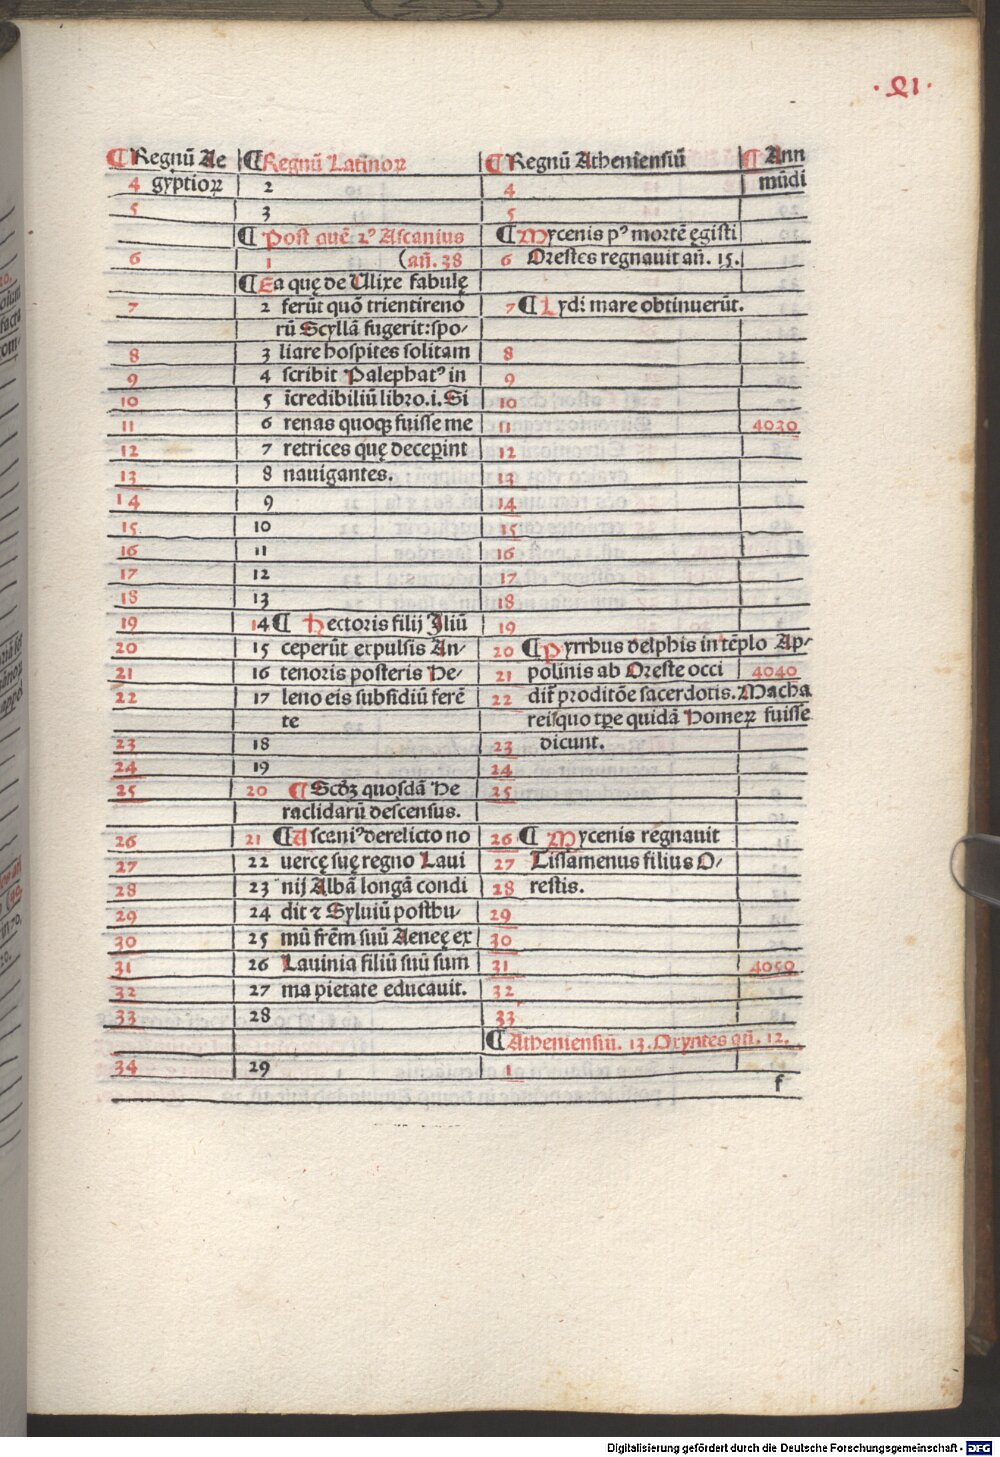 ·41·
¶ Regnū Ae ¶ Regnū Latinoꝝ ¶ Regnū Athenienſiū ¶ Ann
4 gyptioꝝ 2 4 mūdi
5 3 5
¶ Poſt quē 2ꝰ Aſcanius ¶ Mycenis pꝰ mortē ęgiſti
6 1 (añ. 38 6 Oreſtes regnauit añ. 15.
¶ Ea quę de Ulixe fabulę
7 2 ferūt quō trientirenō 7 ¶ Lydi mare obtinuerūt.
rū Scyllā fugerit: ſpo-
8 3 liare hoſpites ſolitam 8
9 4 ſcribit Palephatꝰ in 9
10 5 īcredibiliū libro.i. Si 10
11 6 renas quoqꝫ fuiſſe me 11 4030
12 7 retrices quę deceꝑint 12
13 8 nauigantes. 13
14 9 14
15 10 15
16 11 16
17 12 17
18 13 18
19 14 ¶ Hectoris filij Jliū 19
20 15 ceperūt expulſis An- 20 ¶ Pyrrhus delphis in tēplo Ap-
21 16 tenoris poſteris He- 21 pollinis ab Oreſte occi 4040
22 17 leno eis ſubſidiū ferē 22 dit̄ proditōe ſacerdotis. Macha
te reiſquo tꝑe quidā Homeꝝ fuiſſe
23 18 23 dicunt.
24 19 24
25 20 ¶ Scḋꝫ quoſdā He 25
raclidarū deſcenſus.
26 21 ¶ Aſcaniꝰ derelicto no 26 ¶ Mycenis regnauit
27 22 uercę ſuę regno Laui 27 Tiſſamenus filius O-
28 23 nij Albā longā condi 28 reſtis.
29 24 dit ⁊ Syluiū poſthu- 29
30 25 mū frēm ſuū Aeneę ex 30
31 26 Lauinia filiū ſuū ſum̄ 31 4050
32 27 ma pietate educauit. 32
33 28 33
¶ Athenienſiū. 13. Oxyntes añ. 12.
34 29 1
f
Digitalisierung gefördert durch die Deutsche Forschungsgemeinschaft - DFG